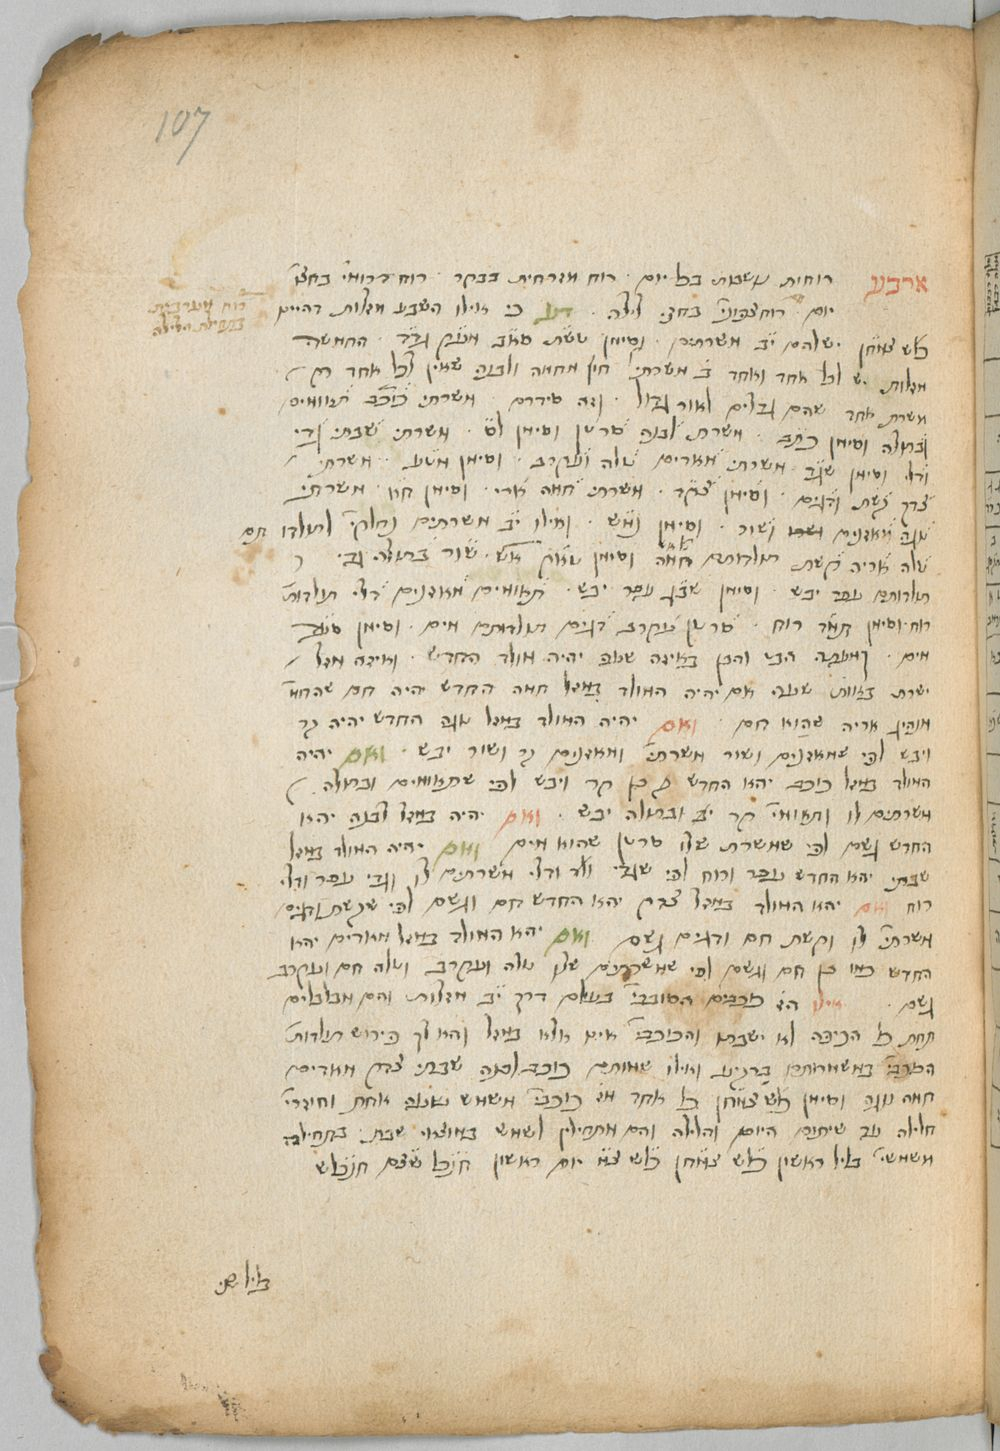 107
ארבע רוחות נושבות בכל יום · רוח מזרחית בבקר · רוח דרומי' בחצי
יום · רוח צפוני' בחצי לילה · דע כי אילו השבע מזלות דהיינו
רוח מערבית
בתחילת הלילה
כל"ש צמ"חן יש להם י"ב משרתים · וסימן טש"ת סא"ב מע"ק גד"ד · החמשה
מזלות יש לכל אחד ואחד ב' משרתי' חוץ מחמה ולבנה שאין לכל אחד רק
משרת אחד שהם · וזה סידרם · משרתי כוכב תאומים
ובתולה וסימן כת"ב · משרת לבנה סרטן וסימן ל"ס · משרתי שבתי גדי
ודלי וסימן שג"ד משרתי מאדים טלה ועקרב · וסימן מט"ע · משרתי
צדק קשת ודגים · וסימן צק"ד · משרתי חמה ארי · וסימן ח"א · משרתי
נוגה מאזנים ושור · וסימן נמ"ש · ואילו י"ב משרתים נחלקי' לתולדו' חם
טלה אריה קשת תולדותם חמה וסימן טא"ק אש · שור בתולה גדי
תולדותם עפר יבש · וסימן שב"ג עפר יבש · תאומים מאזנים דלי תולדות
רוח וסימן תמ"ד רוח · סרטן עקרב דגים תולדותם מים · וסימן סע"ד
מים · הבן באיזה שעה יהיה מולד החדש · ואיזה מזל
ישרת באות' שעה אם יהיה המולד במזל חמה החדש יהיה חם שהחמ'
אריה שהוא חם · ואם יהיה המולד במזל נוגה החדש יהיה קר
ויבש לפי שמאזנים ושור משרתי' ומאזנים קר ושור יבש · ואם יהיה
המולד במזל כוכב יהא החדש ג"כ קר ויבש לפי שתאומים ובתולה
משרתים לו ותאומי' קר ובתולה יבש · ואם יהיה במזל לבנה יהא
החדש גשם לפי שמשרת שלו סרטן שהוא מים ואם יהיה המולד במזל
שבתי יהא החדש עפר ורוח לפי שגדי ודלי משרתים לו וגדי עפר ודלי
רוח ואם יהא המולד במזל צדק יהא החדש חם וגשם לפי שקשת ודגים
משרתי' לו וקשת חם ודגים גשם ואם יהא המולד במזל מאדים יהא
החדש כמו כן חם וגשם לפי שמשרתים שלו טלה ועקרב וטלה חם ועקרב
גשם · אילו הז' כוכבים הסובבי' בעולם דרך י"ב מזלות והם מבלבלים
תחת כל הכיפה לא ישבתו והכוכבי' אינו אלא במזל והא לך פירוש תולדות
הכוכבי' במשמרותם ברקיע ואילו שמותם כוכב לבנה שבתי צדק מאדים
חמה נוגה וסימן כל"ש צמ"חן כל אחד מז' כוכבי' משמש שעה אחת וחוזרי'
חלילה עד שיתום היום והלילה והם מתחילין לשמש במוצאי שבת בתחילה
משמשי' בליל ראשון כל"ש צמ"חן כל"ש צ"מ יום ראשון חנכ"ל שצ"ם חנכ"לש
בליל שני